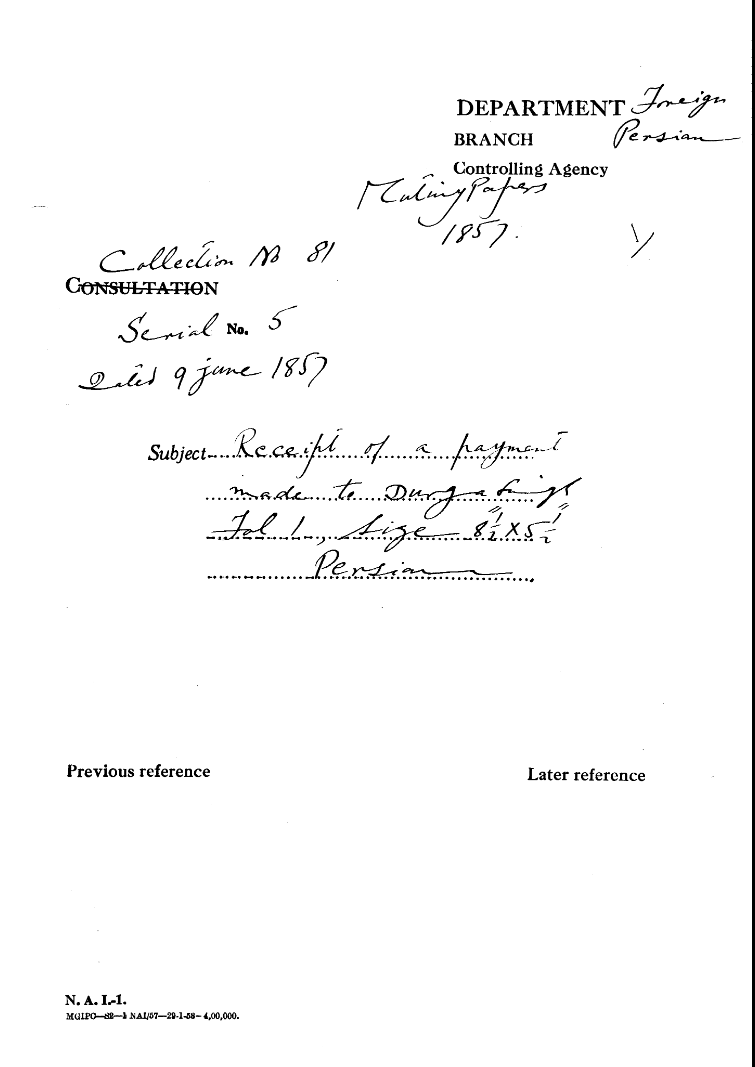 DEPARTMENT Foreign
BRANCH Persian
Controlling Agency
Mutiny Papers
1857.
Collection No 81
CONSULTATION
Serial No. 5
Dated 9 june 1857
Subject Receipt of a payment
made to Durga Singh
Fol 1, Size 8½" X 5½"
Persian
Previous reference
Later reference
N. A. I.-1.
MGIPC—S2—1 NAI/57—29-1-58—4,00,000.